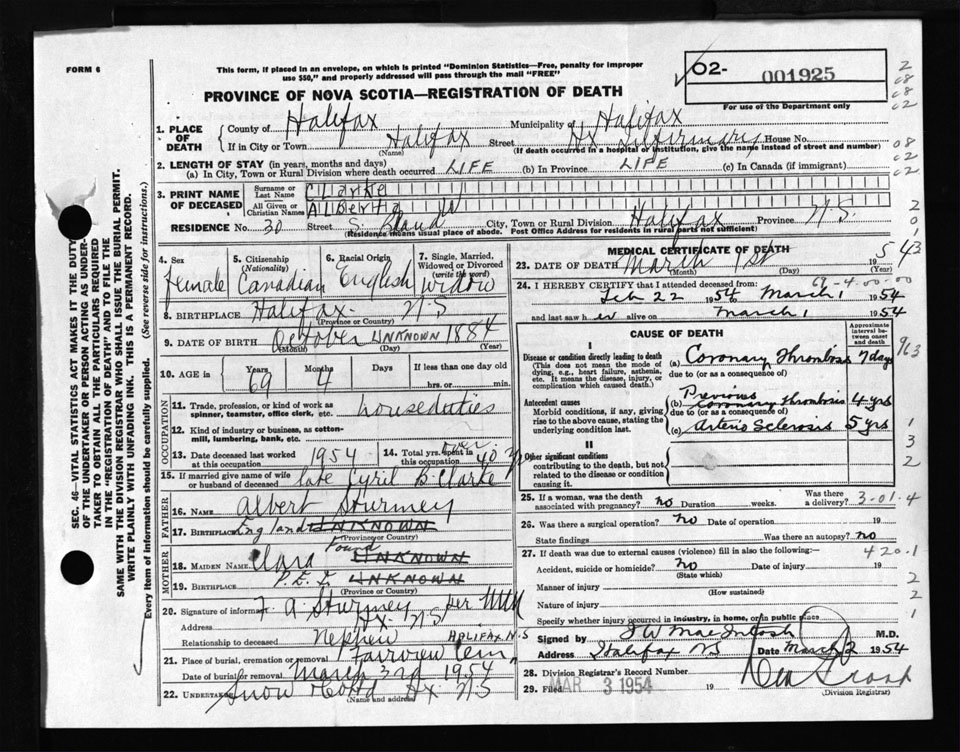 FORM 6
This form, if placed in an envelope, on which is printed "Dominion Statistics—Free, penalty for improper
use $50," and properly addressed will pass through the mail "FREE"
O2- 001925
For use of the Department only
PROVINCE OF NOVA SCOTIA—REGISTRATION OF DEATH
2
08
08
02
1. PLACE OF DEATH
County of Halifax Municipality of Halifax
If in City or Town Halifax Street Hx Infirmary House No.
(Name) (If death occurred in a hospital or institution, give the name instead of street and number)
08
02
02
2. LENGTH OF STAY (in years, months and days)
(a) In City, Town or Rural Division where death occurred LIFE (b) In Province LIFE (c) In Canada (if immigrant)
3. PRINT NAME OF DECEASED
Surname or Last Name Clarke
All Given or Christian Names Alberta W
RESIDENCE No. 30 Street S. Bland City, Town or Rural Division Halifax Province N.S.
(Residence means usual place of abode. Post Office Address for residents in rural parts not sufficient)
2
0
1
4. Sex female
5. Citizenship (Nationality) Canadian
6. Racial Origin English
7. Single, Married, Widowed or Divorced (write the word) widow
8. BIRTHPLACE Halifax N.S
(Province or Country)
9. DATE OF BIRTH October UNKNOWN 1884
(Month) (Day) (Year)
10. AGE in Years 69 Months 4 Days If less than one day old hrs. or min.
OCCUPATION
11. Trade, profession, or kind of work as spinner, teamster, office clerk, etc. houseduties
12. Kind of industry or business, as cotton-mill, lumbering, bank, etc.
13. Date deceased last worked at this occupation 1954
14. Total yrs. spent in this occupation over 40 yr
15. If married give name of wife or husband of deceased late Cyril B. Clarke
FATHER
16. Name Albert Sturmey
17. Birthplace England UNKNOWN
(Province or Country)
MOTHER
18. MAIDEN NAME Clara UNKNOWN
19. BIRTHPLACE P.E.I. UNKNOWN
(Province or Country)
20. Signature of informant F. A. Sturmey per
Address Hx. N.S
Relationship to deceased Nephew
HALIFAX N.S
21. Place of burial, cremation or removal Fairview Cem.
Date of burial or removal March 3rd 1954
22. Undertaker Snow Co Ltd Hx N.S
(Name and address)
MEDICAL CERTIFICATE OF DEATH
23. DATE OF DEATH March 1st 195
(Month) (Day) (Year)
43
24. I HEREBY CERTIFY that I attended deceased from: 69-4-00-00
Feb 22 1954 to March 1 1954
and last saw her alive on March 1 1954
CAUSE OF DEATH
Approximate interval between onset and death
963
I
Disease or condition directly leading to death
(This does not mean the mode of dying, e.g., heart failure, asthenia, etc. It means the disease, injury, or complication which caused death.)
(a) Coronary Thrombosis 7 days
due to (or as a consequence of)
Antecedent causes
Morbid conditions, if any, giving rise to the above cause, stating the underlying condition last.
(b) Previous Coronary Thrombosis 4 yrs
due to (or as a consequence of)
(c) Arterio Sclerosis 5 yrs
1
3
2
II
Other significant conditions
contributing to the death, but not related to the disease or condition causing it
25. If a woman, was the death associated with pregnancy? no Duration weeks. Was there a delivery? 3-01-4
26. Was there a surgical operation? no Date of operation 19
State findings Was there an autopsy? no
27. If death was due to external causes (violence) fill in also the following:— 420.1
Accident, suicide or homicide? no Date of injury 19
(State which)
Manner of injury
(How sustained)
Nature of injury
2
2
1
Specify whether injury occurred in industry, in home, or in public place
Signed by J W MacIntosh M.D.
Address Halifax NS Date March 2 1954
28. Division Registrar's Record Number
29. Filed MAR 3 1954 19
(Division Registrar)
SEC. 46—VITAL STATISTICS ACT MAKES IT THE DUTY
OF THE UNDERTAKER OR PERSON ACTING AS UNDER-
TAKER TO OBTAIN ALL THE PARTICULARS REQUIRED
IN THE "REGISTRATION OF DEATH" AND TO FILE THE
SAME WITH THE DIVISION REGISTRAR WHO SHALL ISSUE THE BURIAL PERMIT.
WRITE PLAINLY WITH UNFADING INK. THIS IS A PERMANENT RECORD.
Every item of information should be carefully supplied. (See reverse side for instructions.)